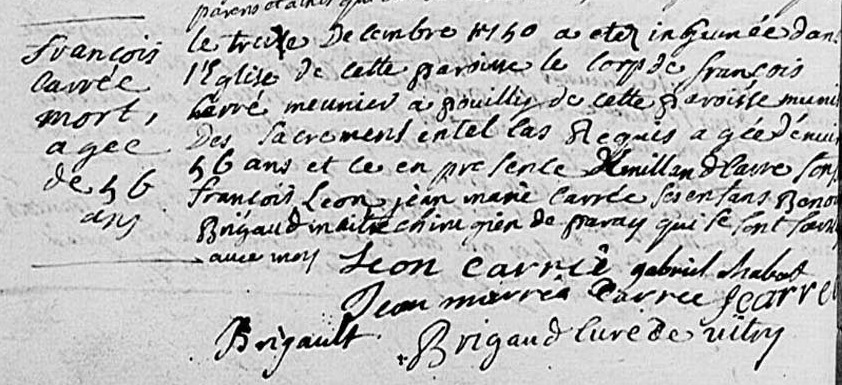 parens et amis qui
François
Carrée
mort,
agée
de 56
ans
le treize Decembre 1750 a etez inhumée dans
l'Eglise de cette paroisse le corp de françois
Carré meunier a pouilly de cette paroisse muni
Des sacremens entel cas Requis agée d'envir
56 ans et ce en presence Carre
françois Leon jean marie Carrée ses enfans Beno
Brigaud maitre chirugien de paray qui se sont
avec moy
Leon Carrié gabriel
Jean marrea Carree fcarre
Brigault Brigaud Curé de vitry